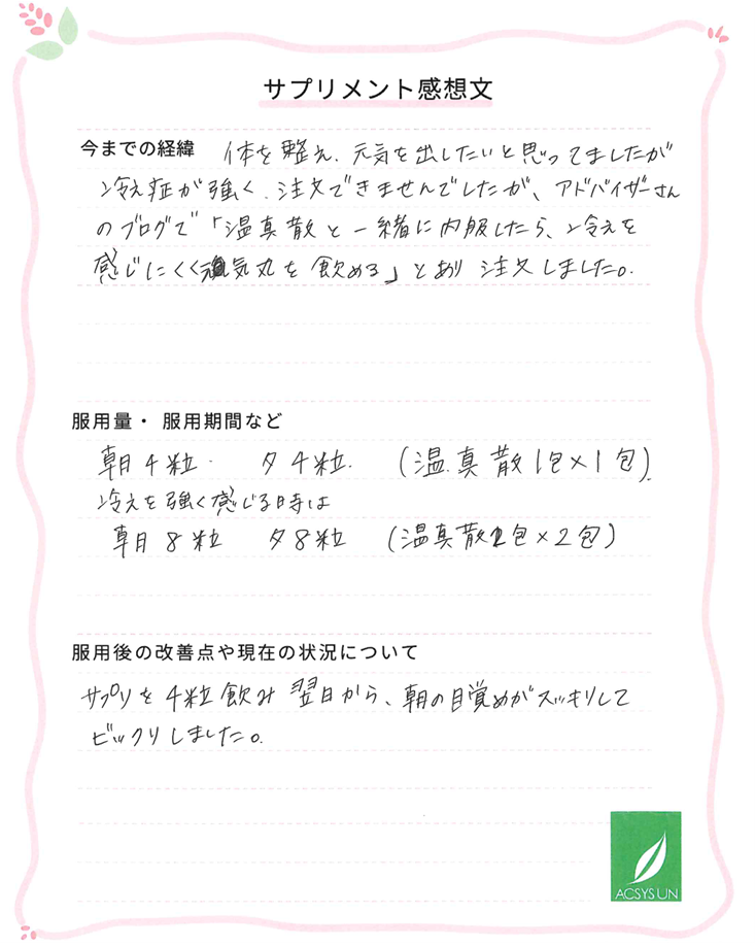 サプリメント感想文
今までの経緯 体を整え、元気を出したいと思ってましたが
冷え症が強く、注文できませんでしたが、アドバイザーさん
のブログで「温真散と一緒に内服したら、冷えを
感じにくく気丸を飲める」とあり注文しました。
服用量・ 服用期間など
朝4粒 夕4粒. (温真散1包×1包).
冷えを強く感じる時は
朝8粒 夕8粒 (温真散2包×2包)
服用後の改善点や現在の状況について
サプリを4粒飲み翌日から、朝の目覚めがスッキリして
ビックリしました。
ACSYSUN